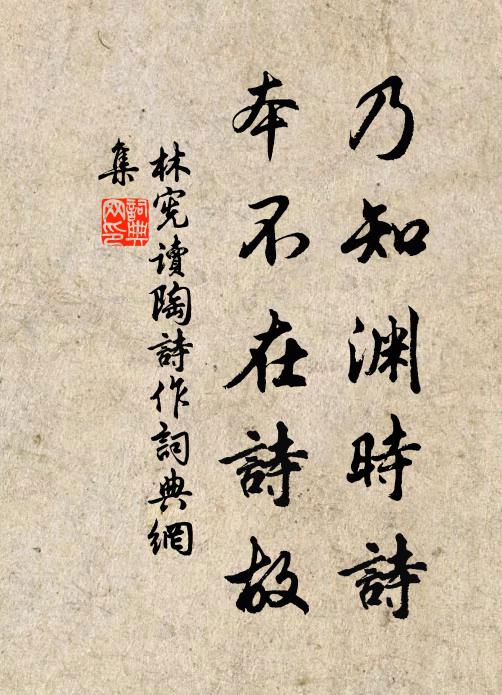 乃知渊時詩
本不在詩故
林宪讀陶詩作詞典網
集
詞典网印